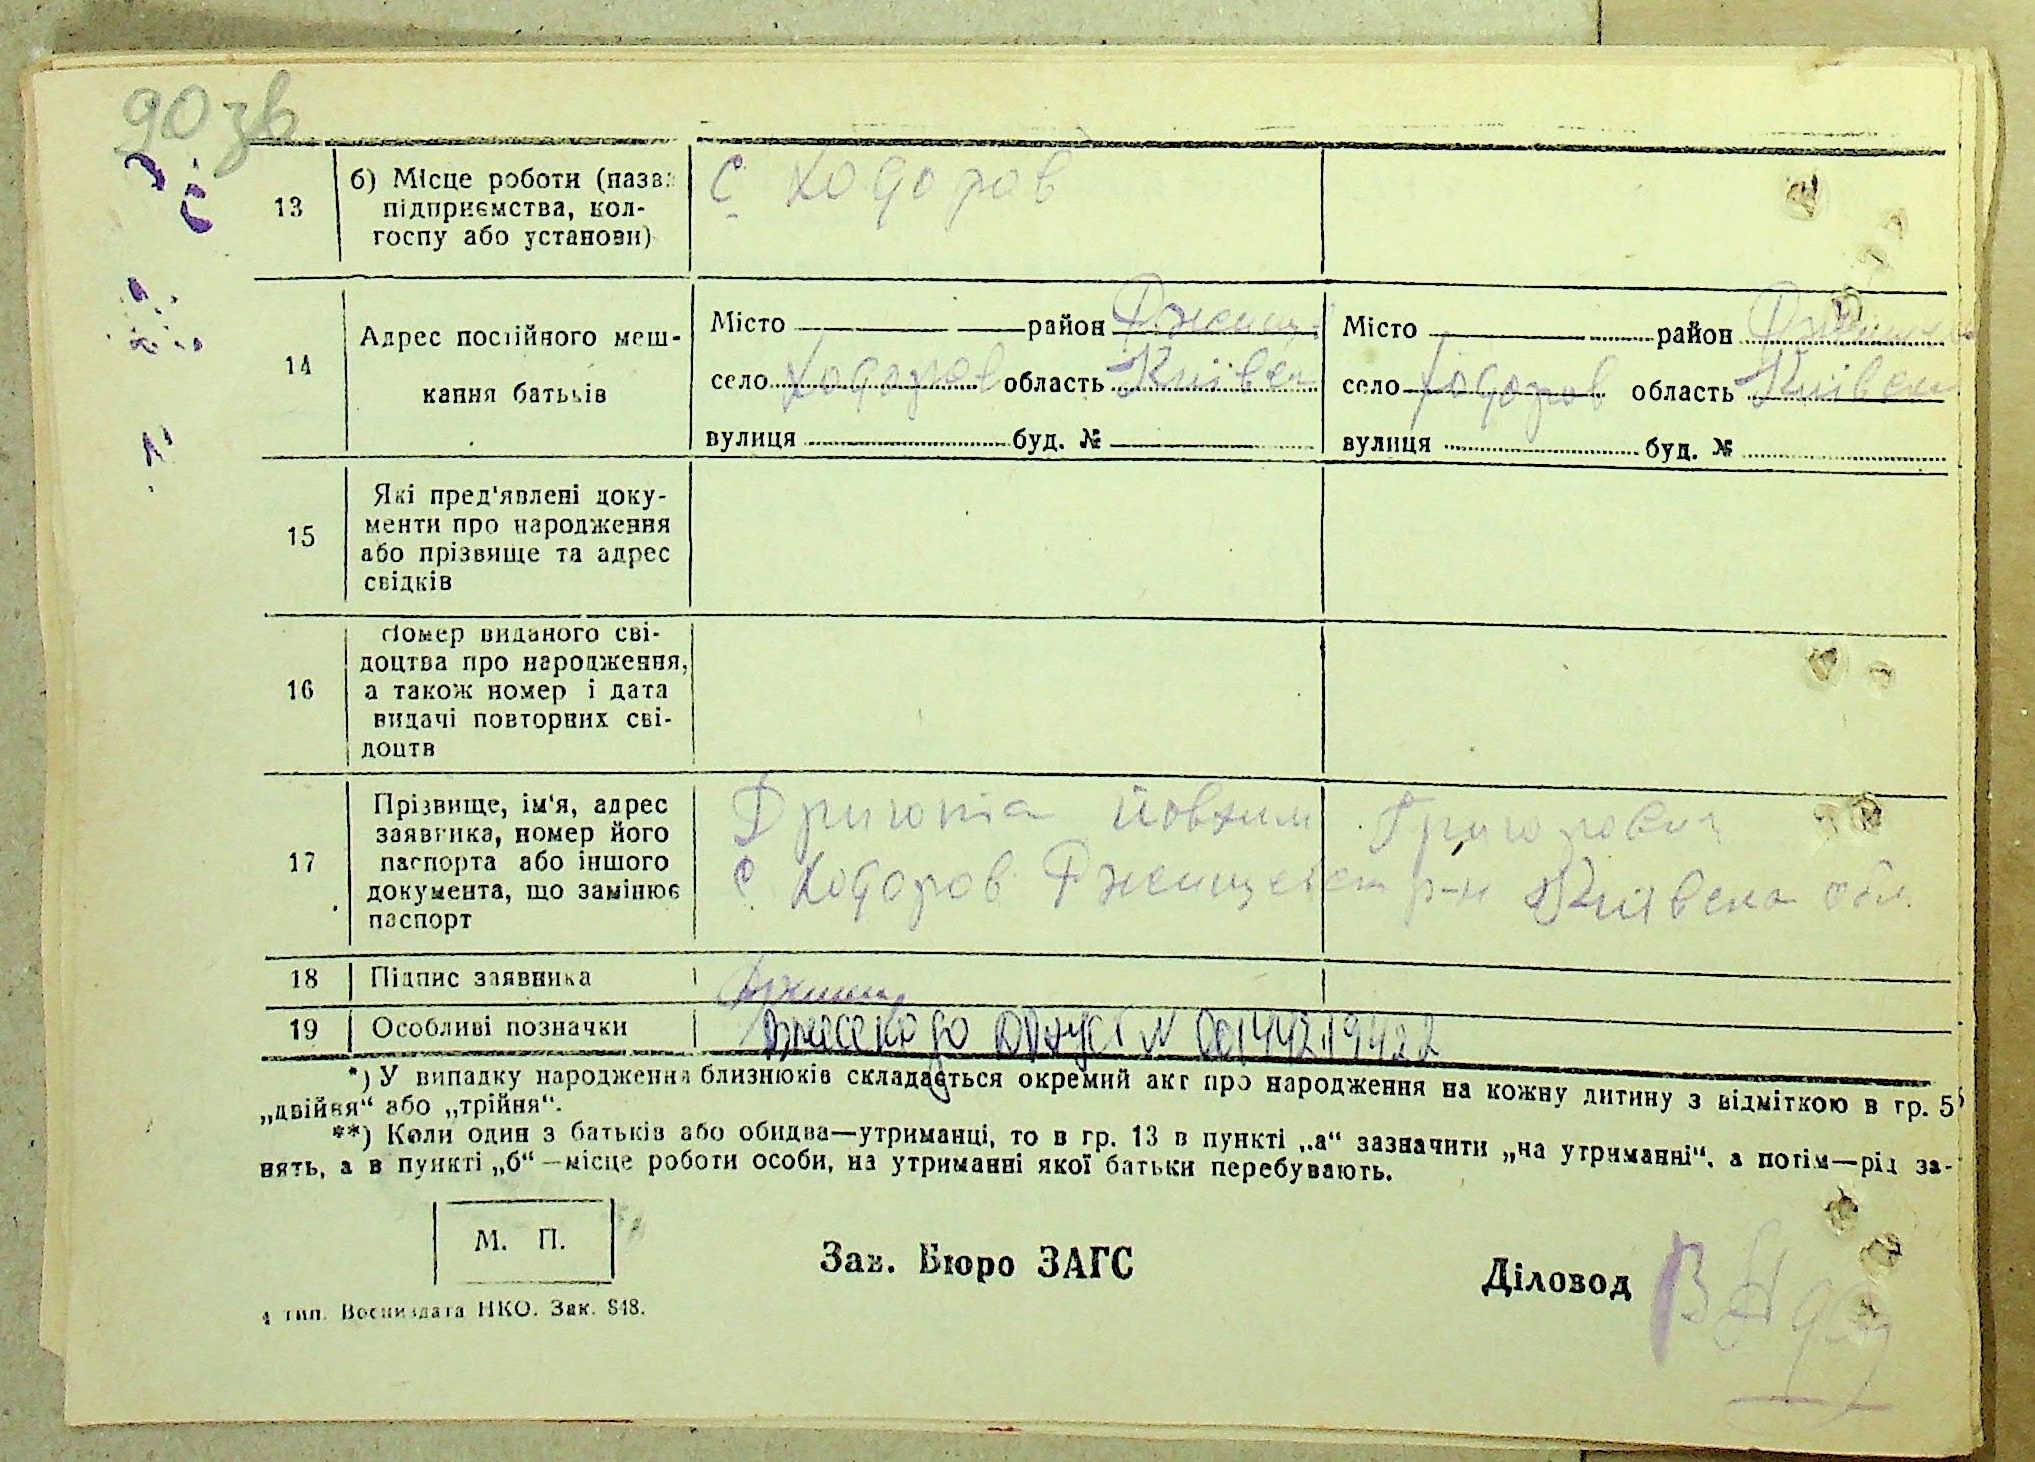 90 зв
13
б) Місце роботи (назва
підприємства, кол-
госпу або установи)
с Ходоров
14
Адрес постійного меш-
кання батьків
Місто район Ржищ
село Ходоров область Київск
вулиця буд. №
Місто район Ржищев
село Ходоров область Київск
вулиця буд. №
15
Які пред'явлені доку-
менти про народження
або прізвище та адрес
свідків
16
Номер виданого сві-
доцтва про народження,
а також номер і дата
видачі повторних сві-
доцтв
17
Прізвище, ім'я, адрес
заявника, номер його
паспорта або іншого
документа, що замінює
паспорт
Йовхим Григорович
с Ходоров Ржищевск р-н Київска обл.
18
Підпис заявника
19
Особливі позначки
Внесено до ДРАЦСГ № 00144219422
*) У випадку народження близнюків складається окремий акт про народження на кожну дитину з відміткою в гр. 5
„двійня“ або „трійня“.
**) Коли один з батьків або обидва—утриманці, то в гр. 13 в пункті „а“ зазначити „на утриманні“, а потім—рід за-
нять, а в пункті „б“—місце роботи особи, на утриманні якої батьки перебувають.
М. П.
Зав. Бюро ЗАГС
Діловод
4 тип. Воениздата НКО. Зак. 848.